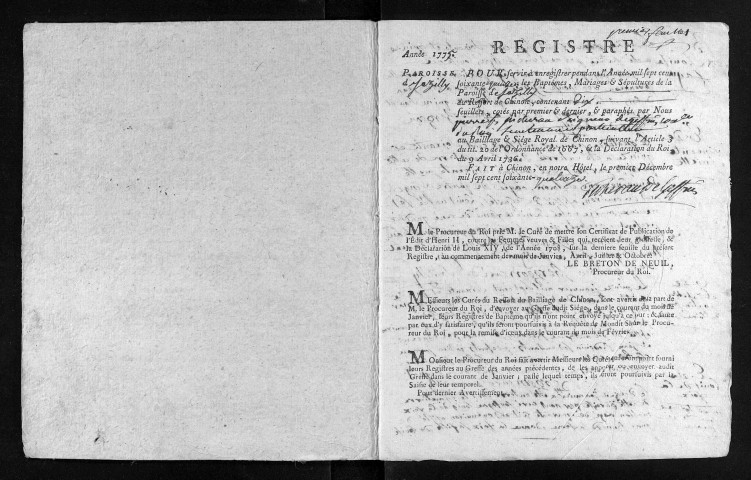 premier feuillet
REGISTRE
Année 1775.
PAROISSE
d Jazilly
POUR servir à enregistrer pendant l'Année mil sept cent
soixante-quinze les Baptêmes, Mariages & Sépultures de la
Paroisse de Jazilly
du Ressort de Chinon, contenant dix
feuillets, cotés par premier & dernier, & paraphés par Nous
au Bailliage & Siége Royal de Chinon, suivant l'Article 3
du tit. 20 de l'Ordonnance de 1667, & la Déclaration du Roi
du 9 Avril 1736.
FAIT à Chinon, en notre Hôtel, le premier Décembre
mil sept cent soixante-quatorze.
M. le Procureur du Roi prie M. le Curé de mettre son Certificat de Publication de
l'Edit d'Henri II, contre les Femmes veuves & Filles qui recèlent leur grossesse, &
la Déclaration de Louis XIV, de l'Année 1708, sur la derniere feuille du présent
Registre, au commencement des mois de Janvier, Avril, Juillet & Octobre.
LE BRETON DE NEUIL,
Procureur du Roi.
Messieurs les Curés du Ressort du Bailliage de Chinon, sont avertis de la part de
M. le Procureur du Roi, d'envoyer au Greffe dudit Siége, dans le courant du mois de
Janvier, leurs Registres de Baptême qu'ils n'ont point envoyé jusqu'à ce jour; & faute
par eux d'y satisfaire, qu'ils seront poursuivis à la Requête de Mondit Sieur le Procu-
reur du Roi, pour la remise d'iceux dans le courant du mois de Février.
Monsieur le Procureur du Roi fait avertir Messieurs les Curés qui n'ont point fourni
leurs Registres au Greffe des années précédentes, de les apporter ou envoyer audit
Greffe dans le courant de Janvier; passé lequel temps, ils seront poursuivis par la
Saisie de leur temporel.
Pour dernier Avertissement.